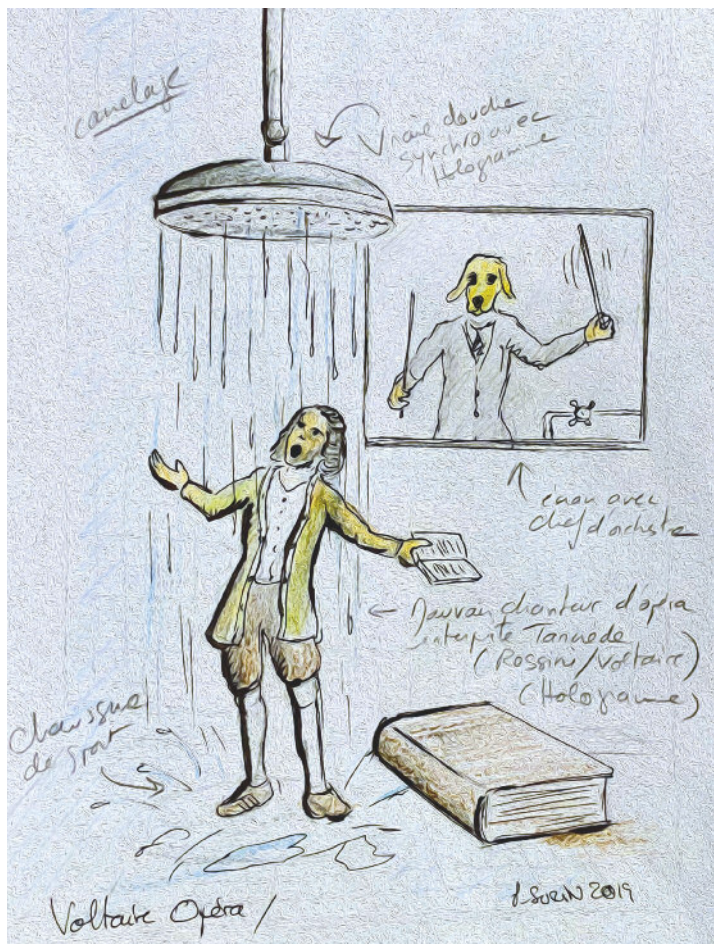 carrelage
Vraie douche
synchro avec
Hologramme
écran avec
Chef d'orchestre
chanteur d'opéra
interprète Tancrède
(Rossini/Voltaire)
(Hologramme)
Chaussures
de sport
Voltaire Opéra /
SURIN 2019